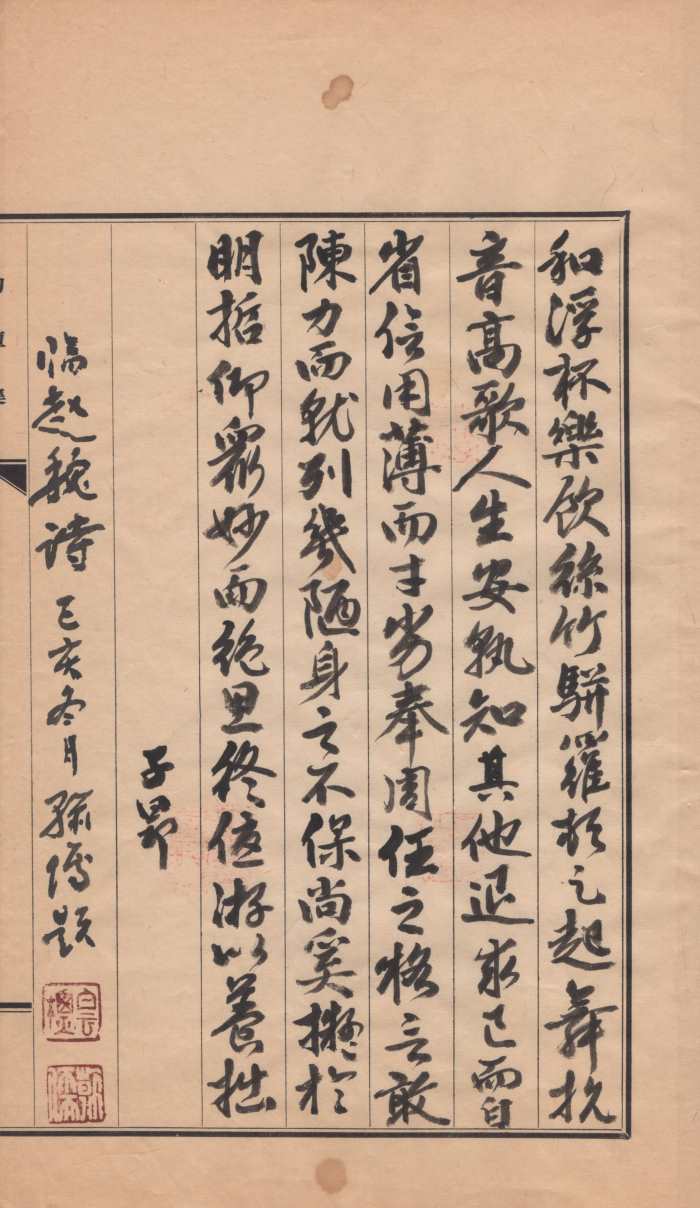 和浮杯樂飲絲竹駢羅頓足起舞抗
音高歌人生安孰知其他退求己而自
省信用薄而才劣奉周任之格言敢
陳力而就列幾陋身之不保尚奚擬於
明哲仰眾妙而絕思終優游以養拙
子昂
臨趙魏詩己亥冬月題